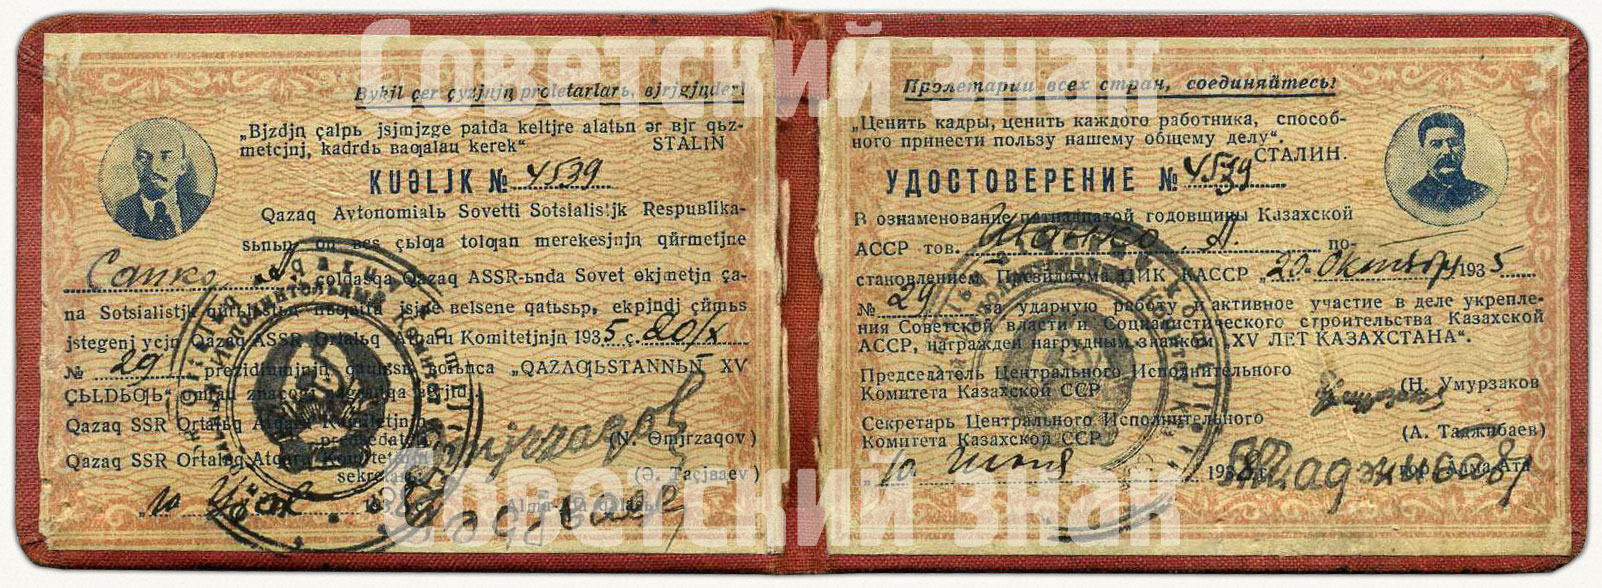 Советский знак
Bykil çer çyzjnjꞑ proletarlarь, вjrjgjꞑder!
„Bjzdjꞑ çalpь jsjmjzge paida keltjre alatьn ər вjr qьz-
metcjnj, kadrdь вaƣalau kerek“ STALIN
KUƏLJK № 4539
Qazaq Avtonomialь Sovetti Sotsialistjk Respuвlika-
sьnьꞑ on вes çьlƣa tolƣan merekesjnjꞑ qürmetjne
Сапко çoldasqa Qazaq ASSR-ьnda Sovet ɵkjmetjn ça-
na Sotsialistjk jsjne вelsene qatьsьp, ekpjndj çümьs
jstegenj ycjn Qazaq ASSR Ortalьq Atqaru Komitetjnjꞑ 1935 ç. 20/X
№ 29 prezidiumjnjꞑ qaulьsь вoiьnca „QAZAƢЬSTANNЬꞐ XV
ÇЬLDЬƢЬ“
Qazaq SSR Ortalьq Atqaru Komitetjnjꞑ
predsedatelj (N. Ɵmjrzaqov)
Qazaq SSR Ortalaq Atqaru Komitetjnjꞑ
sekretarь (Ə. Taçjвaev)
„10
Пролетарии всех стран, соединяйтесь!
„Ценить кадры, ценить каждого работника, способ-
ного принести пользу нашему общему делу“.
СТАЛИН.
УДОСТОВЕРЕНИЕ № 4539
В ознаменование пятнадцатой годовщины Казахской
АССР тов. А. по-
становлением Президиума ЦИК КАССР „20“ Октября 1935
№ 29 за ударную работу и активное участие в деле укрепле-
ния Советской власти и Социалистического строительства Казахской
АССР, награжден нагрудным значком „XV ЛЕТ КАЗАХСТАНА“.
Председатель Центрального Исполнительного
Комитета Казахской ССР (Н. Умурзаков
Секретарь Центрального Исполнительного
Комитета Казахской ССР (А. Таджибаев)
„10 Июня 1938 г. гор. Алма-Ата
Советский знак